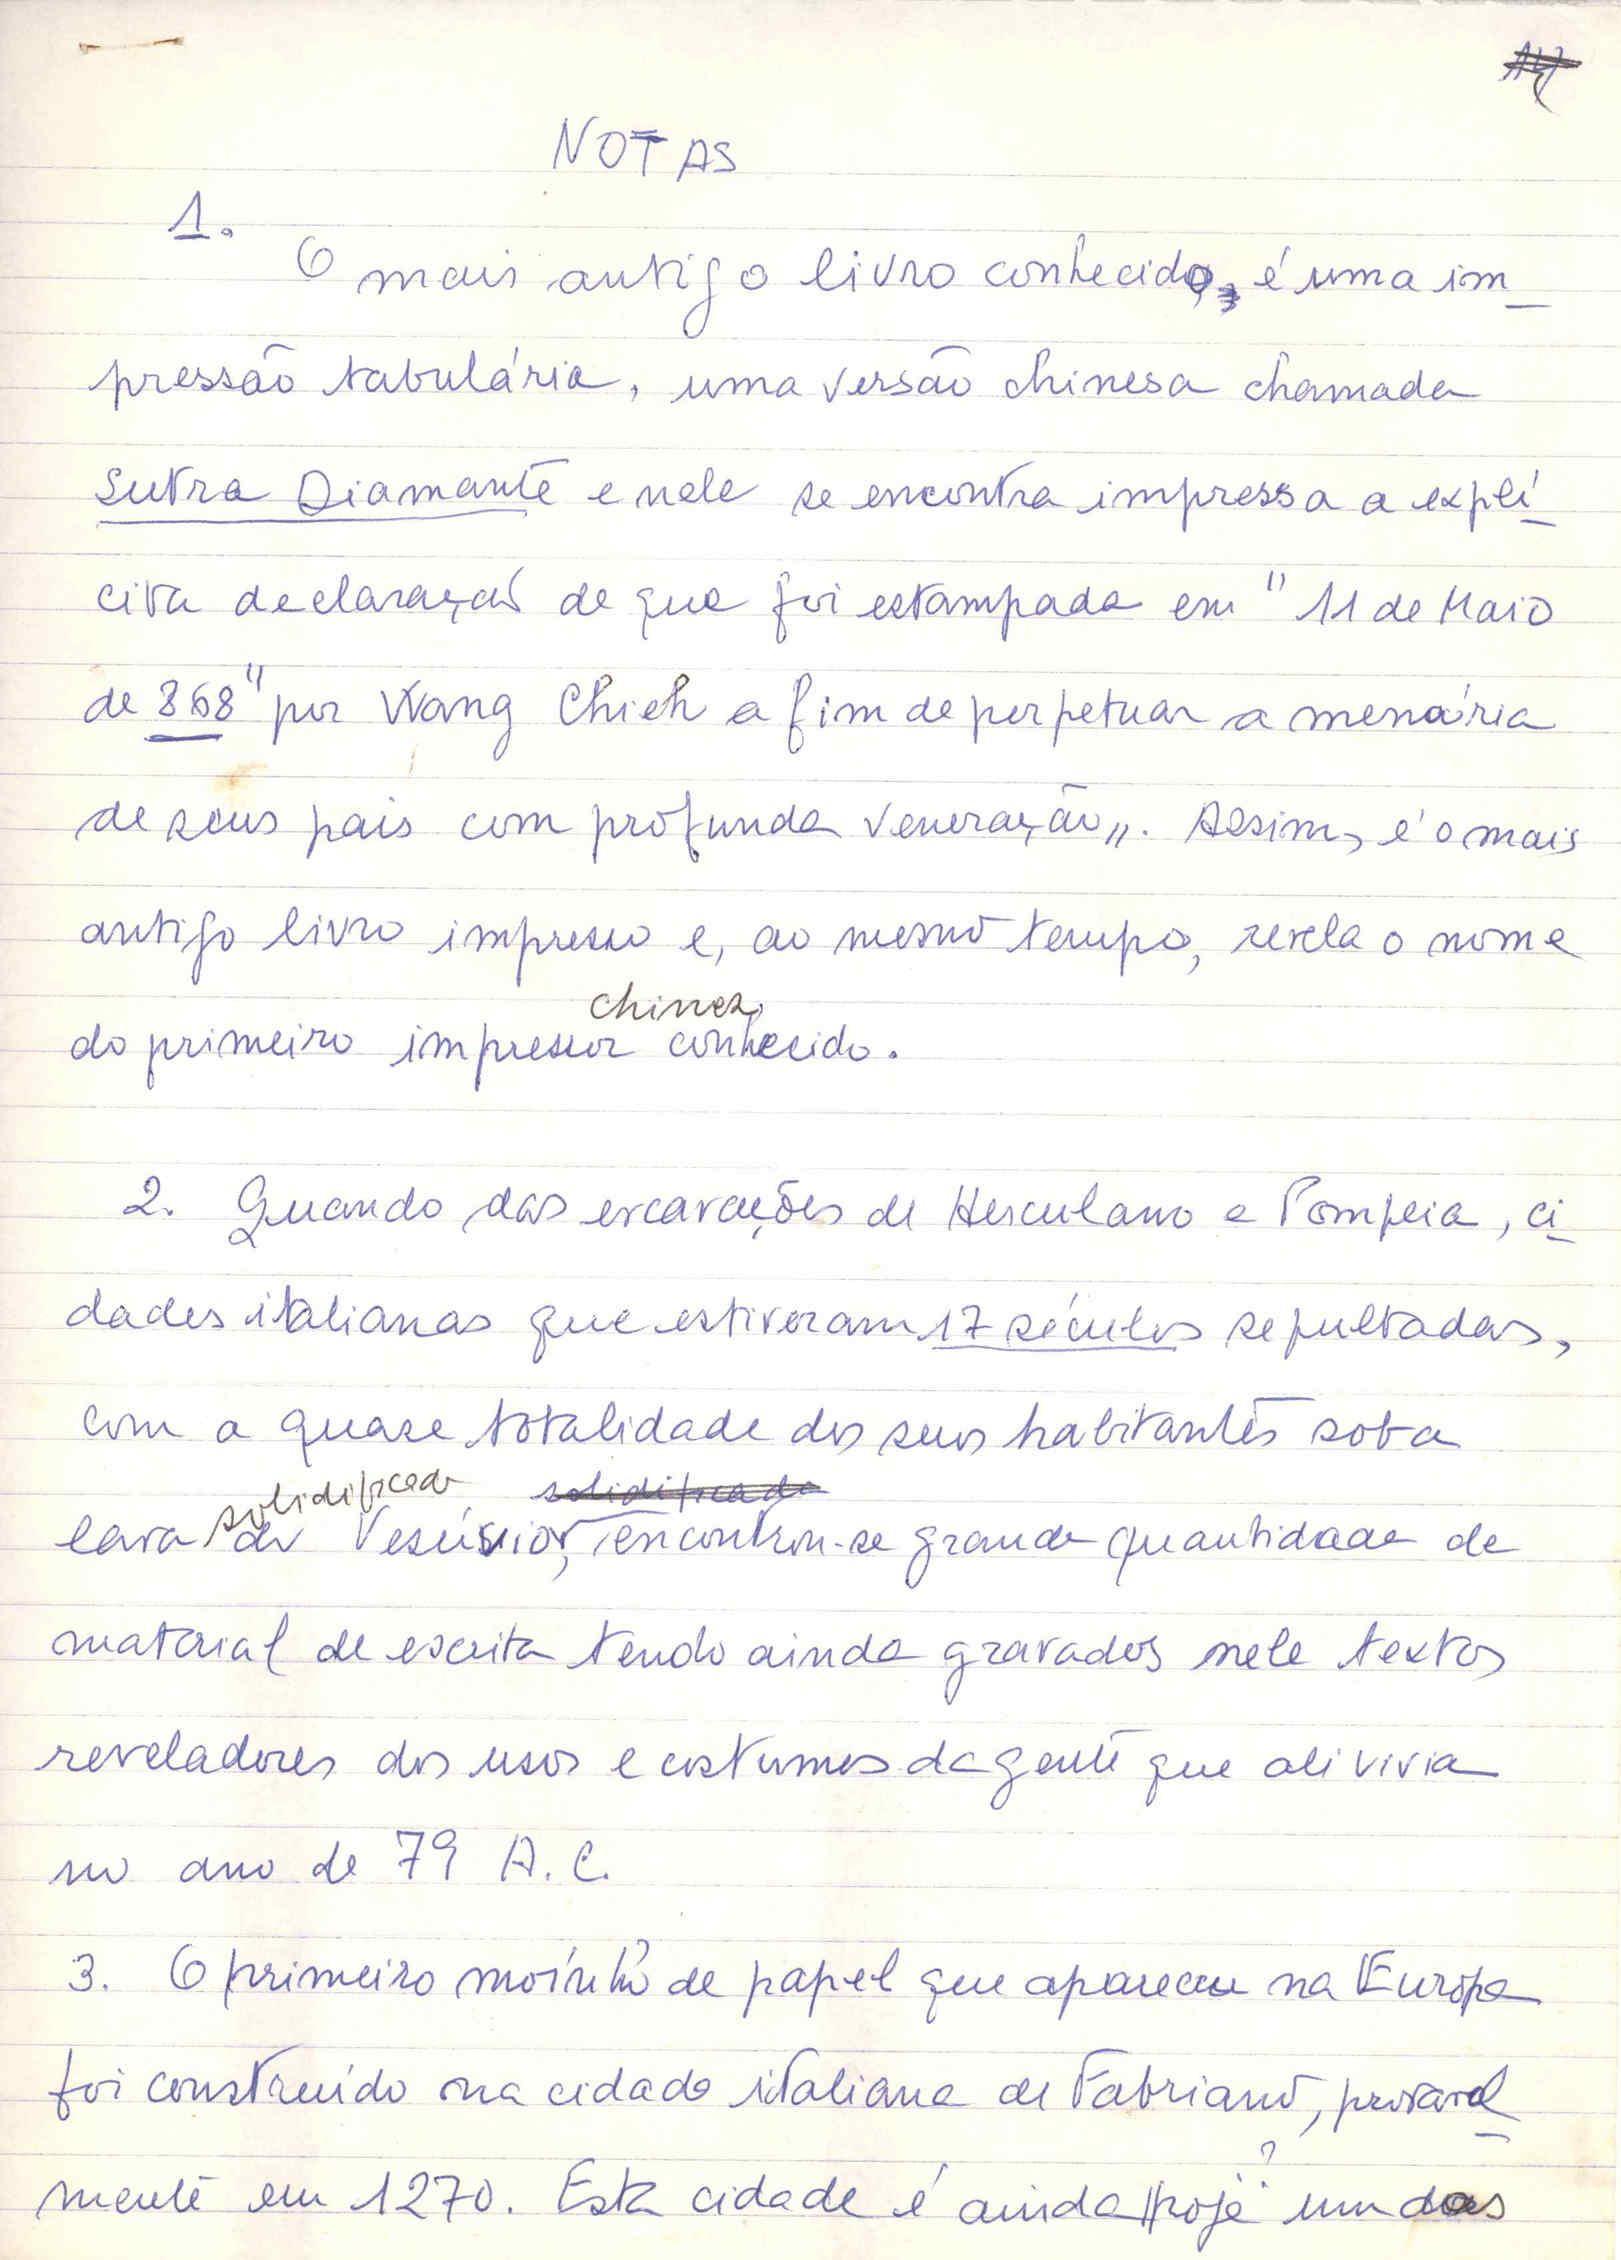 NOTAS
1.
O mais antigo livro conhecido, é uma im-
pressão tabulária, uma versão chinesa chamada
Sutra Diamante e nele se encontra impressa a explí-
cita declaração de que foi estampada em "11 de Maio
de 868" por Wang Chieh a fim de perpetuar a memória
de seus pais com profunda veneração". Assim, é o mais
antigo livro impresso e, ao mesmo tempo, revela o nome
chinez
do primeiro impressor conhecido.
2. Quando das escavações de Herculano e Pompeia, ci-
dades italianas que estiveram 17 séculos sepultadas,
com a quase totalidade dos seus habitantes sob a
solidificada solidificada
lava do Vesúvio, encontrou-se grande quantidade de
material de escrita tendo ainda gravados nele textos
reveladores dos usos e costumes da gente que ali vivia
no ano de 79 A.C.
3. O primeiro moínho de papel que apareceu na Europa
foi construído na cidade italiana de Fabriano, provavel-
mente em 1270. Esta cidade é ainda hoje um dos